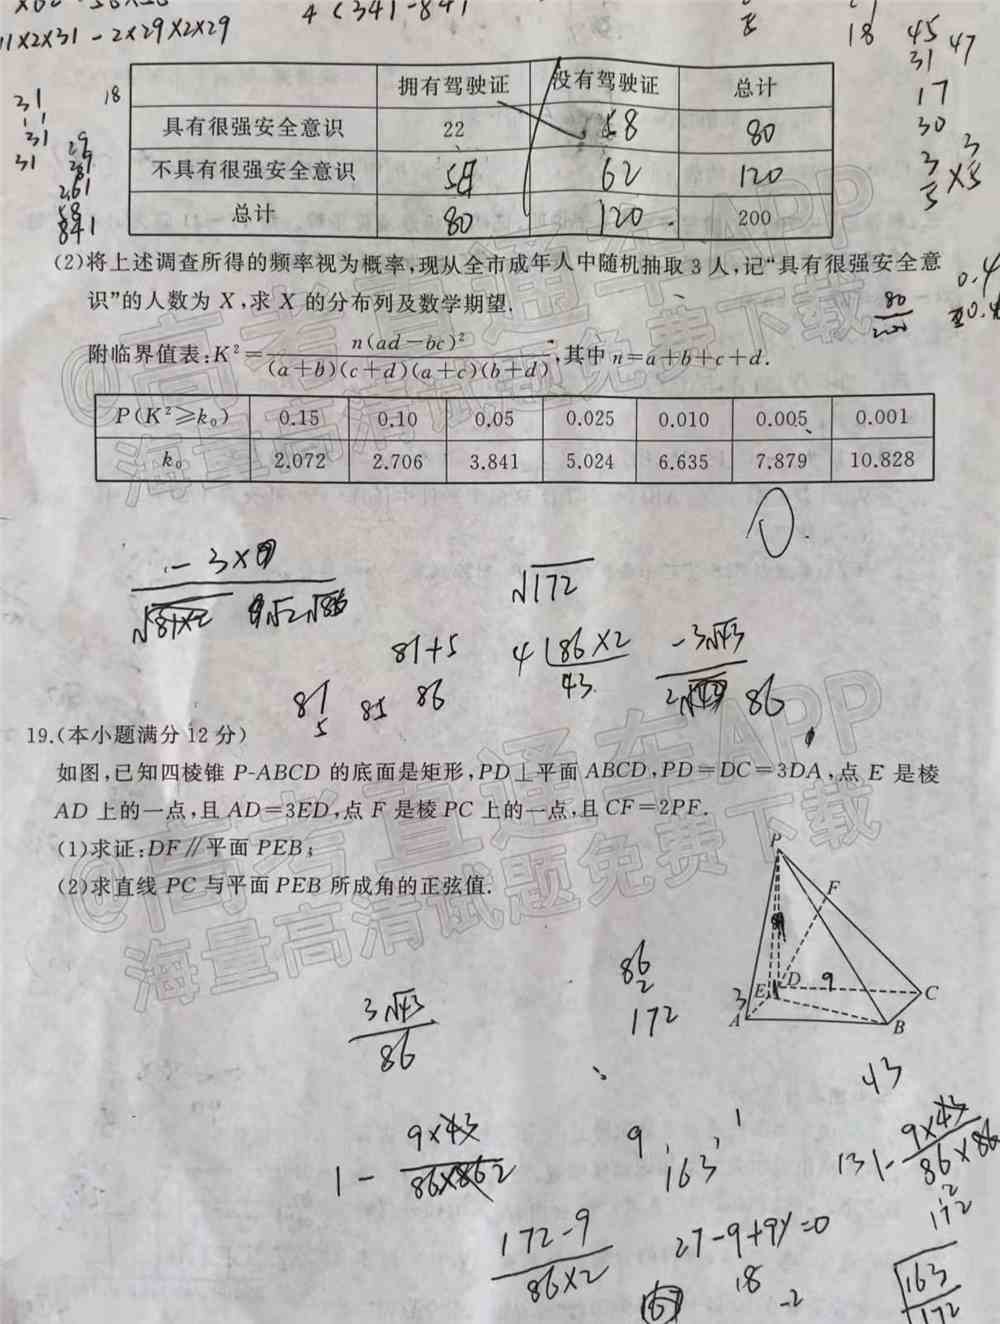 4(341-841
11×2×31-2×29×2×29
18 45 47
31
17
30
3 3
5 ×5
31
31
31
18
29
29
261
58
841
拥有驾驶证 没有驾驶证 总计
具有很强安全意识 22 58 80
不具有很强安全意识 58 62 120
总计 80 120 200
(2)将上述调查所得的频率视为概率,现从全市成年人中随机抽取 3 人,记“具有很强安全意
识”的人数为 X,求 X 的分布列及数学期望.
0.4
80
200
附临界值表:K²=n(ad-bc)²/(a+b)(c+d)(a+c)(b+d),其中 n=a+b+c+d.
P(K²≥k₀) 0.15 0.10 0.05 0.025 0.010 0.005 0.001
k₀ 2.072 2.706 3.841 5.024 6.635 7.879 10.828
√172
81+5
4 86×2
43
-3√43
86
81
5
85
86
19.(本小题满分 12 分)
如图,已知四棱锥 P-ABCD 的底面是矩形,PD⊥平面 ABCD,PD=DC=3DA,点 E 是棱
AD 上的一点,且 AD=3ED,点 F 是棱 PC 上的一点,且 CF=2PF.
(1)求证:DF∥平面 PEB;
(2)求直线 PC 与平面 PEB 所成角的正弦值.
P
F
E D 9 C
3
A B
86
2
172
3√43
86
43
1- 9×43
86×86 2
9, , 1
163
1- 9×43
86×86
2
172
172-9
86×2
27-9+9y=0
18
-2
√163
172
@高考直通车APP
海量高清试题免费下载
@高考直通车APP
海量高清试题免费下载